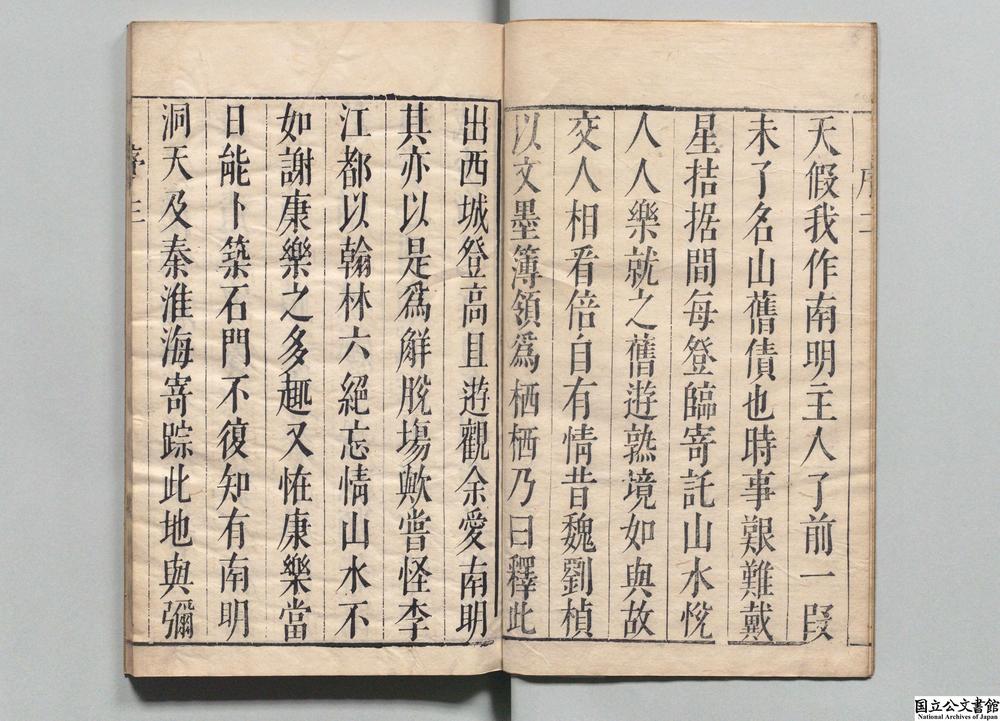 天假我作南明主人了前一段
未了名山舊債也時事艱難戴
星拮据間每登臨寄託山水恍
人人樂就之舊遊熟境如與故
交人相看倍自有情昔魏劉楨
以文墨簿領爲栖栖乃曰釋此
出西城登高且遊觀余愛南明
其亦以是爲解脫場歟嘗怪李
江都以翰林六絕忘情山水不
如謝康樂之多趣又恠康樂當
日能卜築石門不復知有南明
洞天及秦淮海寄踪此地與彌
序三
国立公文書館
National Archives of Japan